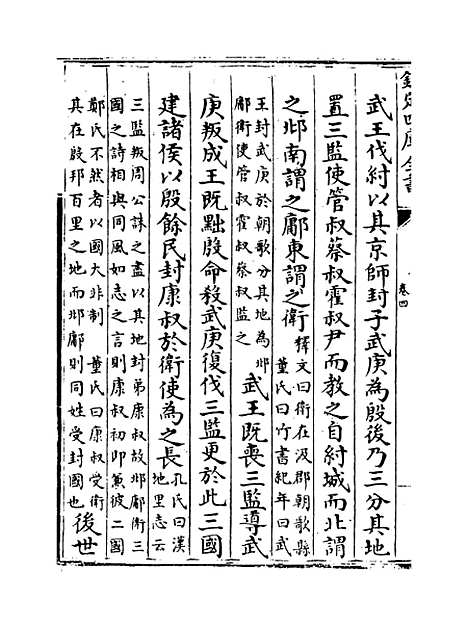 欽定四庫全書
卷四
武王伐紂以其京師封子武庚為殷後乃三分其地
置三監使管叔蔡叔霍叔尹而教之自紂城而北謂
之邶南謂之鄘東謂之衛釋文曰衛在汲郡朝歌縣董氏曰竹書紀年曰武
王封武庚於朝歌分其地為邶鄘衛使管叔霍叔蔡叔監之武王既喪三監導武
庚叛成王既黜殷命殺武庚復伐三監更於此三國
建諸侯以殷餘民封康叔於衛使為之長孔氏曰漢地里志云
三監叛周公誅之盡以其地封弟康叔故邶鄘衛三國之詩相與同風如志之言則康叔初即兼彼二國
鄭氏不然者以國大非制董氏曰康叔受衛其在殷邦百里之地而邶鄘則同姓受封國也後世